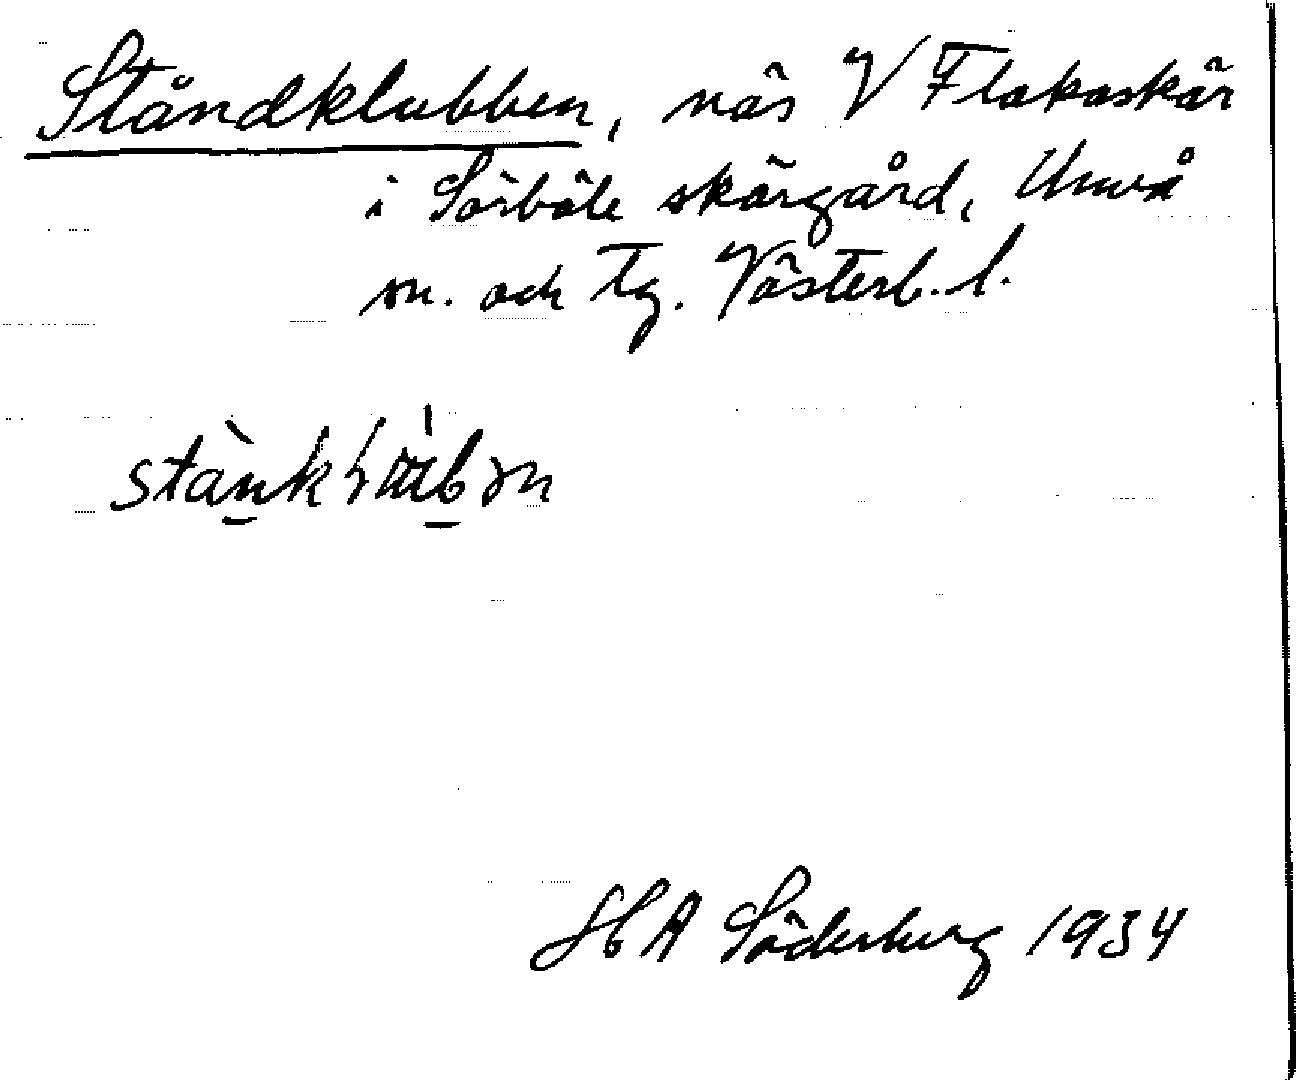 Ståndklubben, näs V Flakaskär
i Sörböle skärgård, Umeå
sn. och tg. Västerb. l.
H A Söderberg 1934